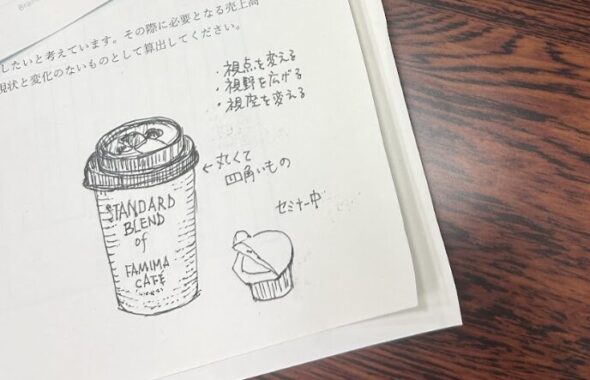 Bra
したいと考えています。その際に必要となる売上高
現状と変化のないものとして算出してください。
・視点を変える
・視野を広げる
・視座を変える
←丸くて
四角いもの
STANDARD
BLEND
of
FAMIMA
CAFÉ
セミナー中